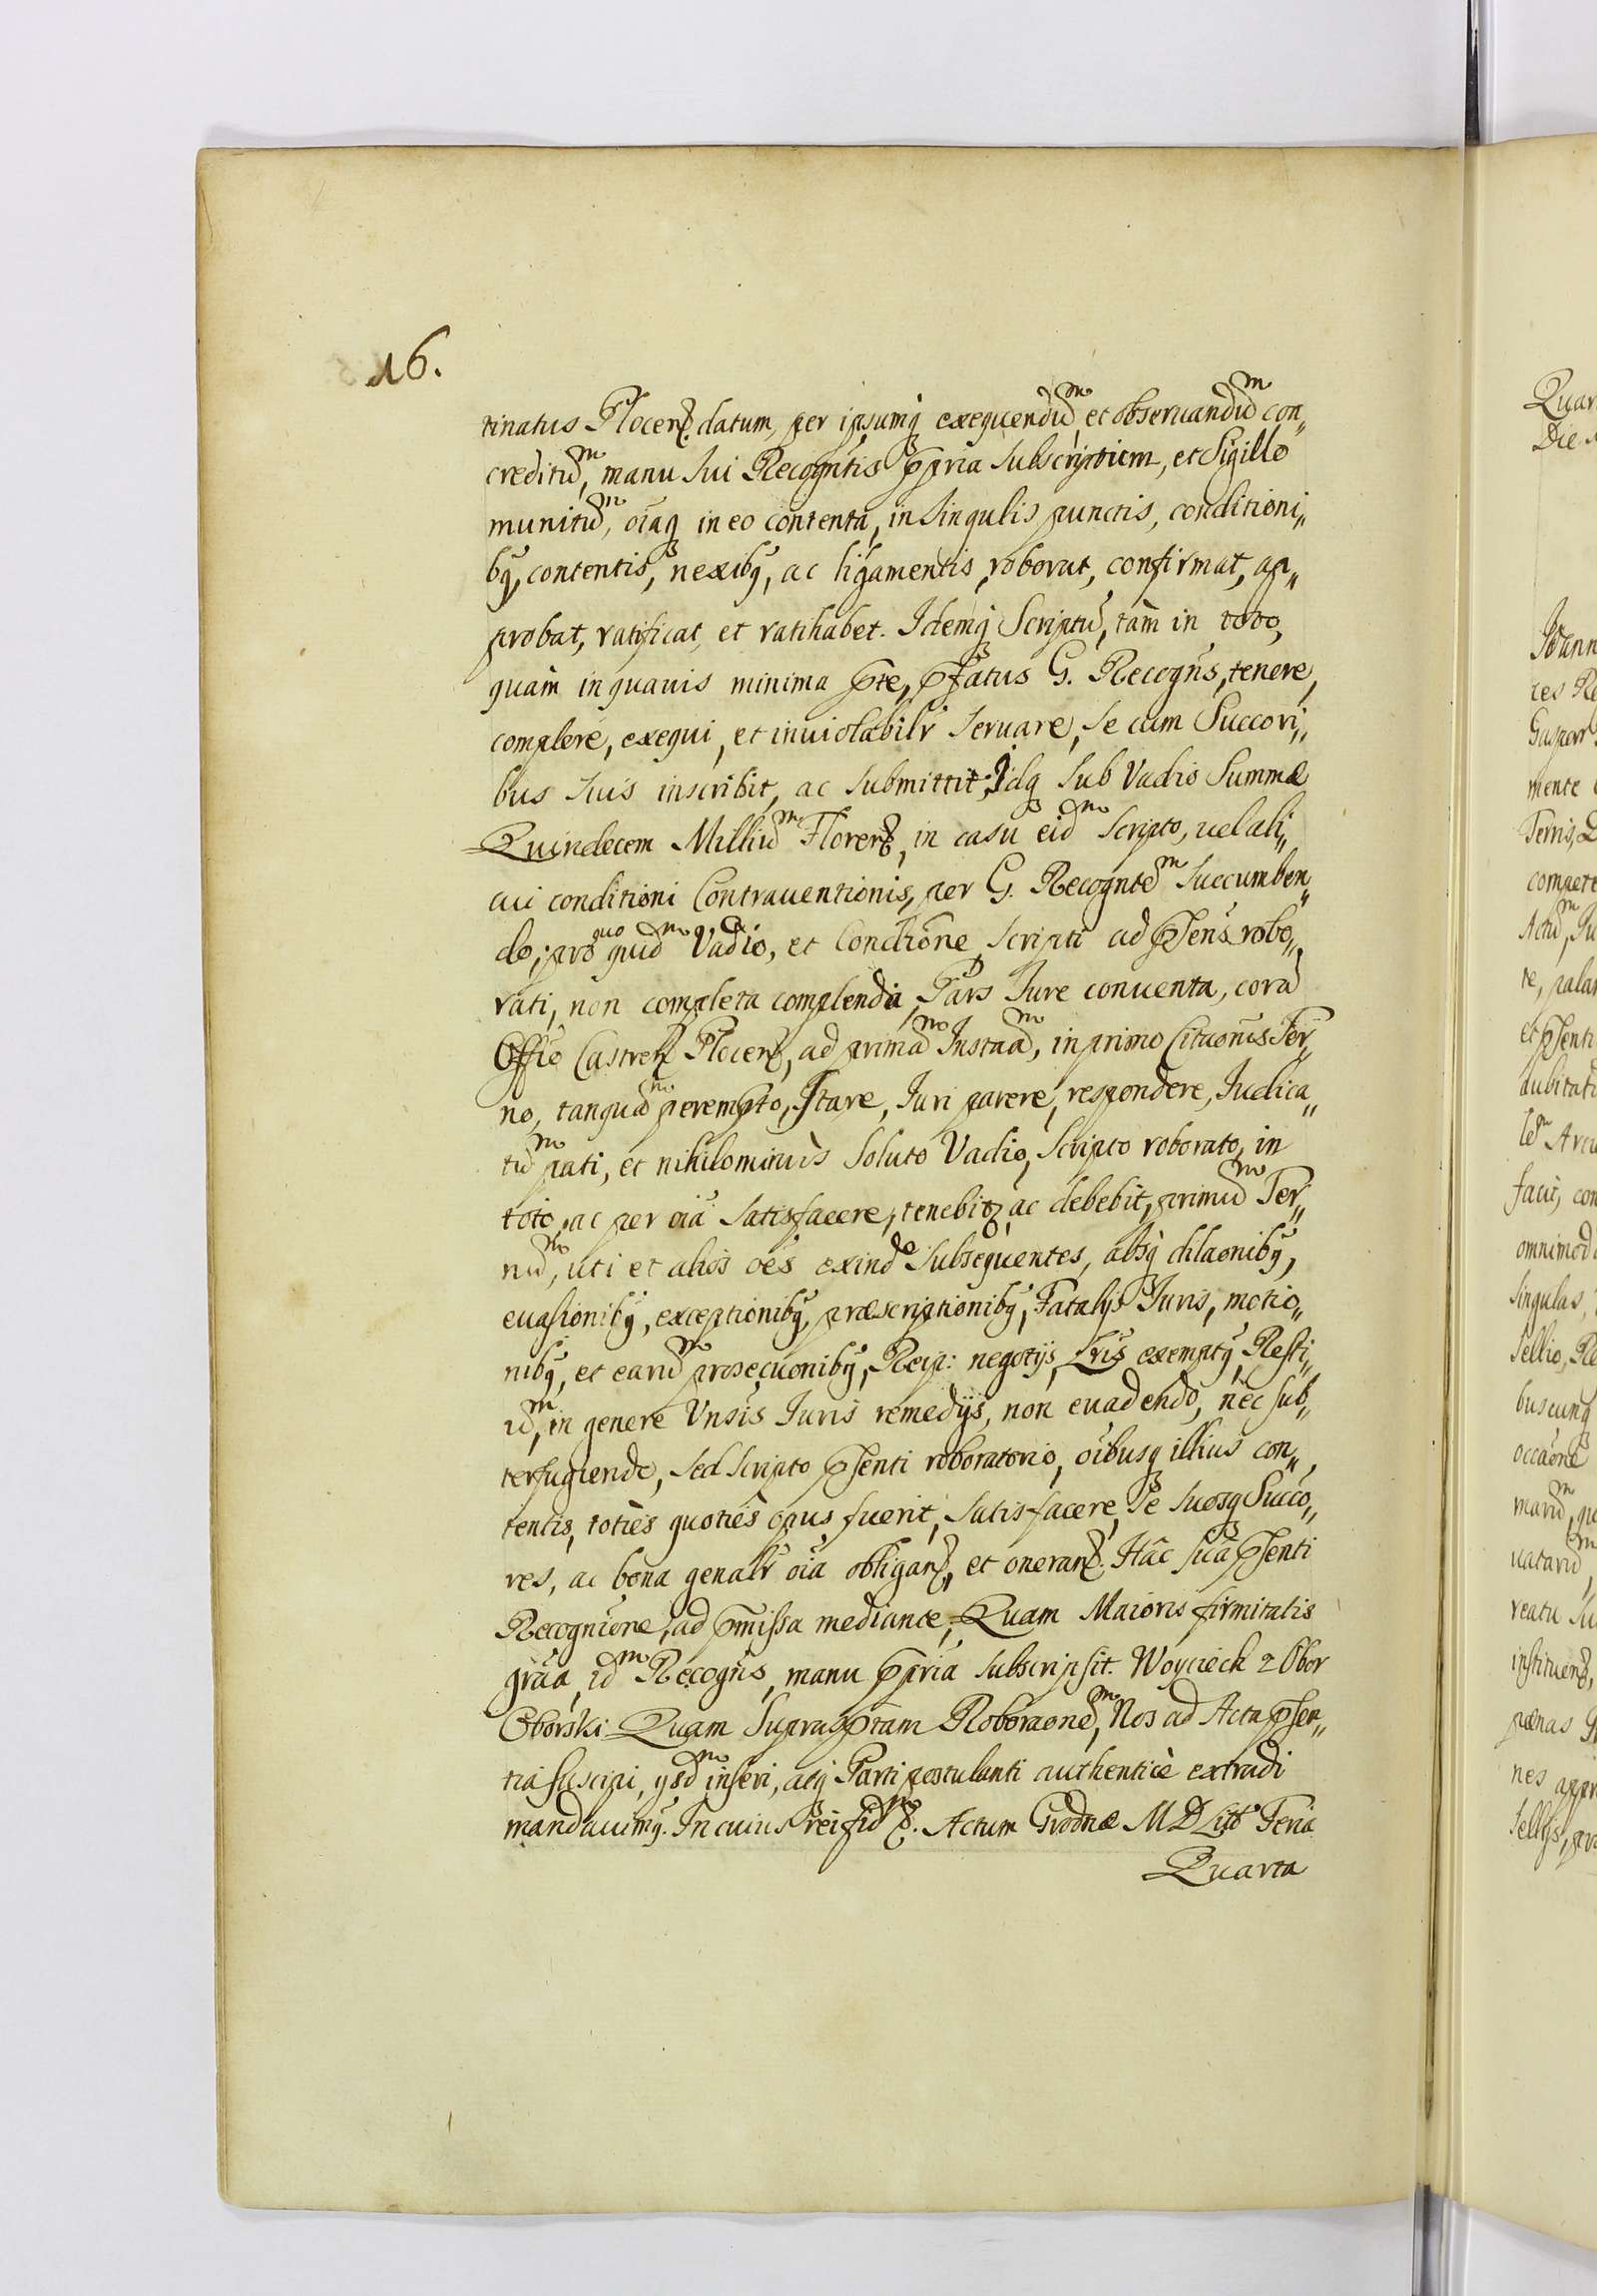 16.
tinatus Plocen. datum, per ipsumq exequendu͂m, et observandu͂m con„
creditu͂m, manu sui Recogntis ppria subscriptum, et Sigillo
munitu͂m, oiaq in eo contenta, in singulis punctis, conditioni„
bq, contentis, nexibq, ac ligamentis, roborat, confirmat, ap„
probat, ratificat, et ratihabet. Idemq Scriptu͂, tàm in toto,
quàm in quavis minima pte, pfatus G. Recogns, tenere,
complere, exequi, et inviolabilr servare, se cum Succori„
bus suis inscribit, ac submittit, Idq sub Vadio Summæ
Quindecem Milliu͂m Floren, in casu eidm Scripto, vel ali„
cui conditioni Contraventionis, per G. Recogntem Succumben„
do; pro quo quidm Vadio, et Condione Scripti ad psens robo„
rati, non completa complenda, Pars Jure conventa, cora͂
Offio Castren Plocen, ad prima͂m Insta͂m, in primo Citaonis Ter„
no, tanqua͂m perempto, Stare, Juri parere, respondere, Judica„
tu͂m pati, et nihilominùs soluto Vadio, Scripto roborato, in
toto, ac per oia satisfacere, tenebit, ac debebit, primu͂m Ter„
nu͂m, uti et alios oes exinde subsequentes, absq dilaonibq,
evasionibq, exceptionibq, præscriptionibq, Fatalijs Juris, motio„
nibq, et earu͂m prosecuonibq, Reip: negotijs, Lris exemptq, Resti„
u͂m, in genere Vnsis Juris remedijs, non evadendo, nec sub„
terfugiendo, sed scripto psenti roboratorio, oibusq illius con„
tentis, totiès quotiès opus fuerit, satisfacere, se suosq Succo„
res, ac bona genalr oia obligan, et oneran. Hâc suâ psenti
Recognione, ad pmissa mediante, Quam Maioris firmitatis
graa, idm Recogns, manu ppria subscripsit. Woyciech z Obor
Oborski Quam suprasptam Roboraone͂m, Nos ad Acta psen„
tia suscipi, ysdm inseri, atq Parti postulanti authenticè extradi
mandavimq. In cuius rei fidm &. Actum Grodnæ M D Lit° Feria
Quarta